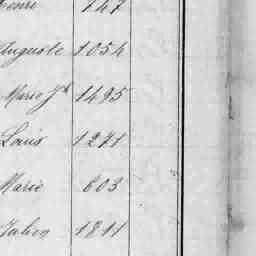 Henri 747
Auguste 1054
Marie Jh 1495
Louis 1271
Marie 603
Julien 1811